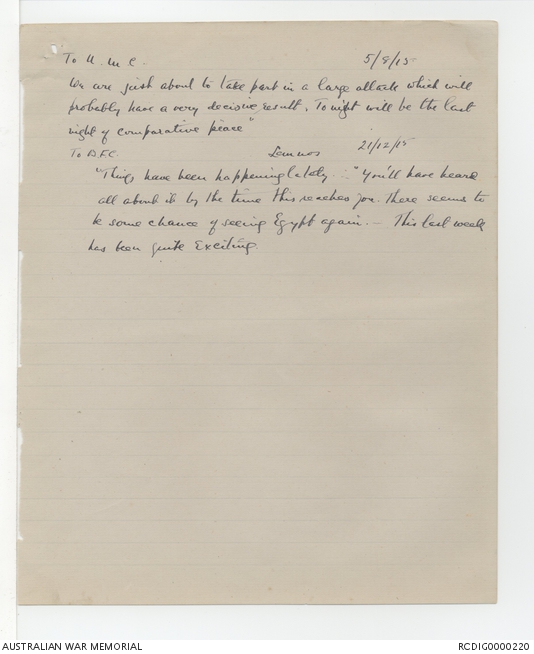 To U. M. C. 5/8/15
We are just about to take part in a large attack which will
probably have a very decisive result. Tonight will be the last
night of comparative peace"
To A.F.C. Lemnos 21/12/15
"Things have been happening lately ... "You'll have heard
all about it by the time this reaches you. There seems to
be some chance of seeing Egypt again. — This last week
has been quite Exciting.
AUSTRALIAN WAR MEMORIAL RCDIG0000220